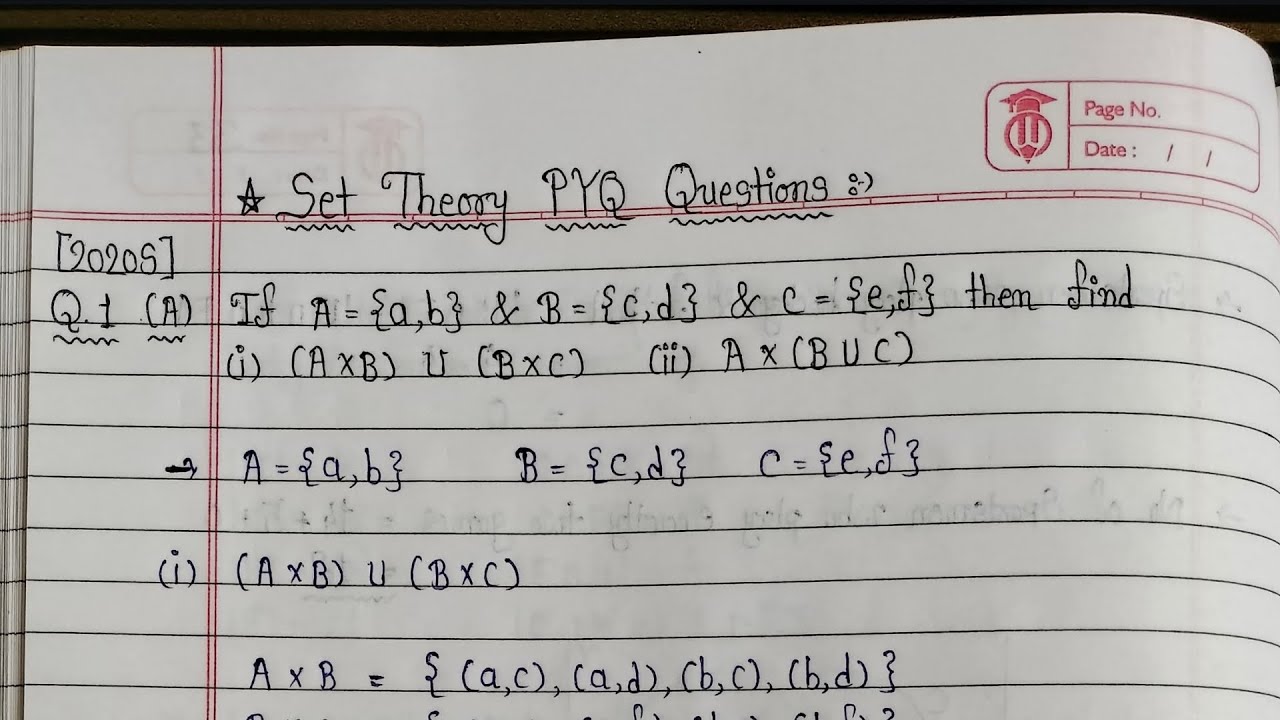 Page No.
Date : / /
★ Set Theory PYQ Questions :-)
[2020S]
Q.1 (A) If A = {a,b} & B = {c,d} & C = {e,f} then find
(i) (A×B) ∪ (B×C) (ii) A × (B ∪ C)
→ A = {a,b} B = {c,d} C = {e,f}
(i) (A×B) ∪ (B×C)
A × B = { (a,c), (a,d), (b,c), (b,d) }